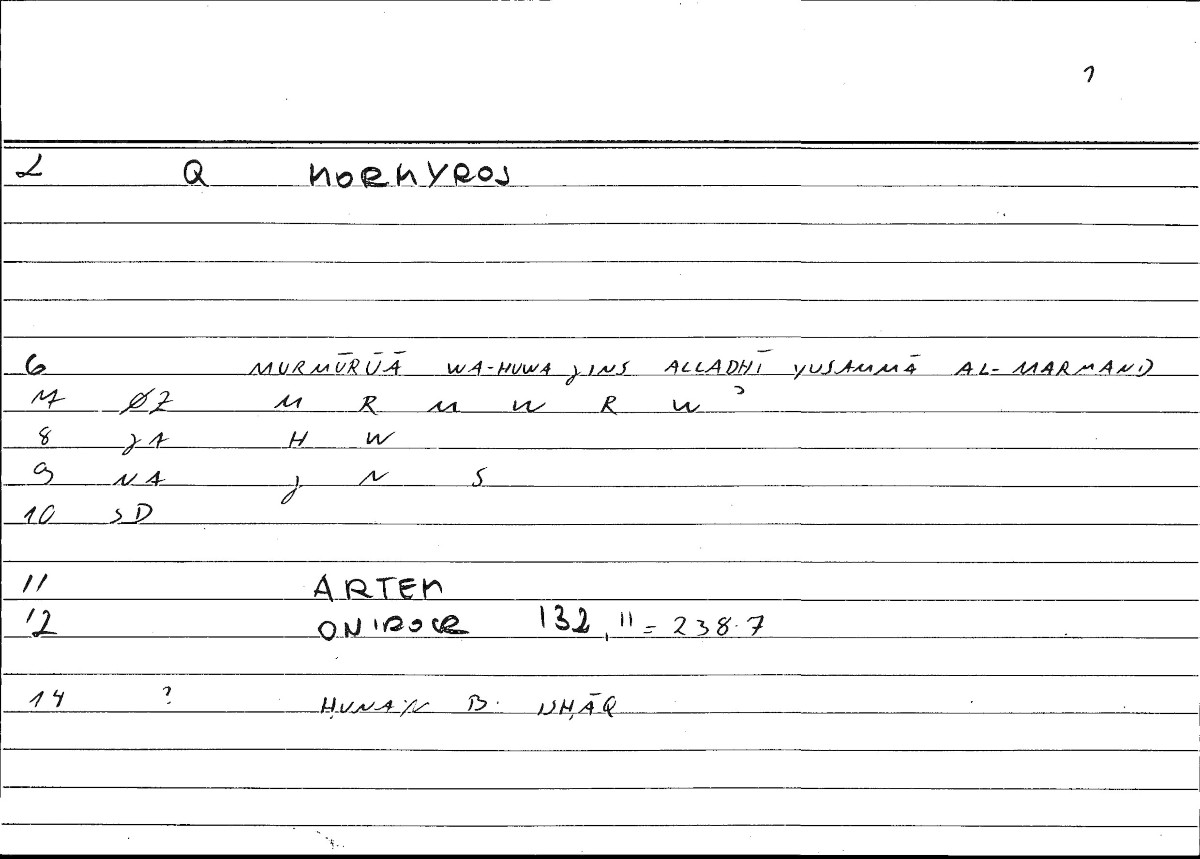 1
2 Q MORMYROS
6 MURMŪRŪĀ WA-HUWA JINS ALLADHĪ YUSAMMĀ AL-MARMAND
7 ØZ M R M W R W ʾ
8 JA H W
9 NA J N S
10 SD
11 ARTEM
12 ONIROCR 132,11 = 238.7
14 ? ḤUNAIN B. ISḤĀQ